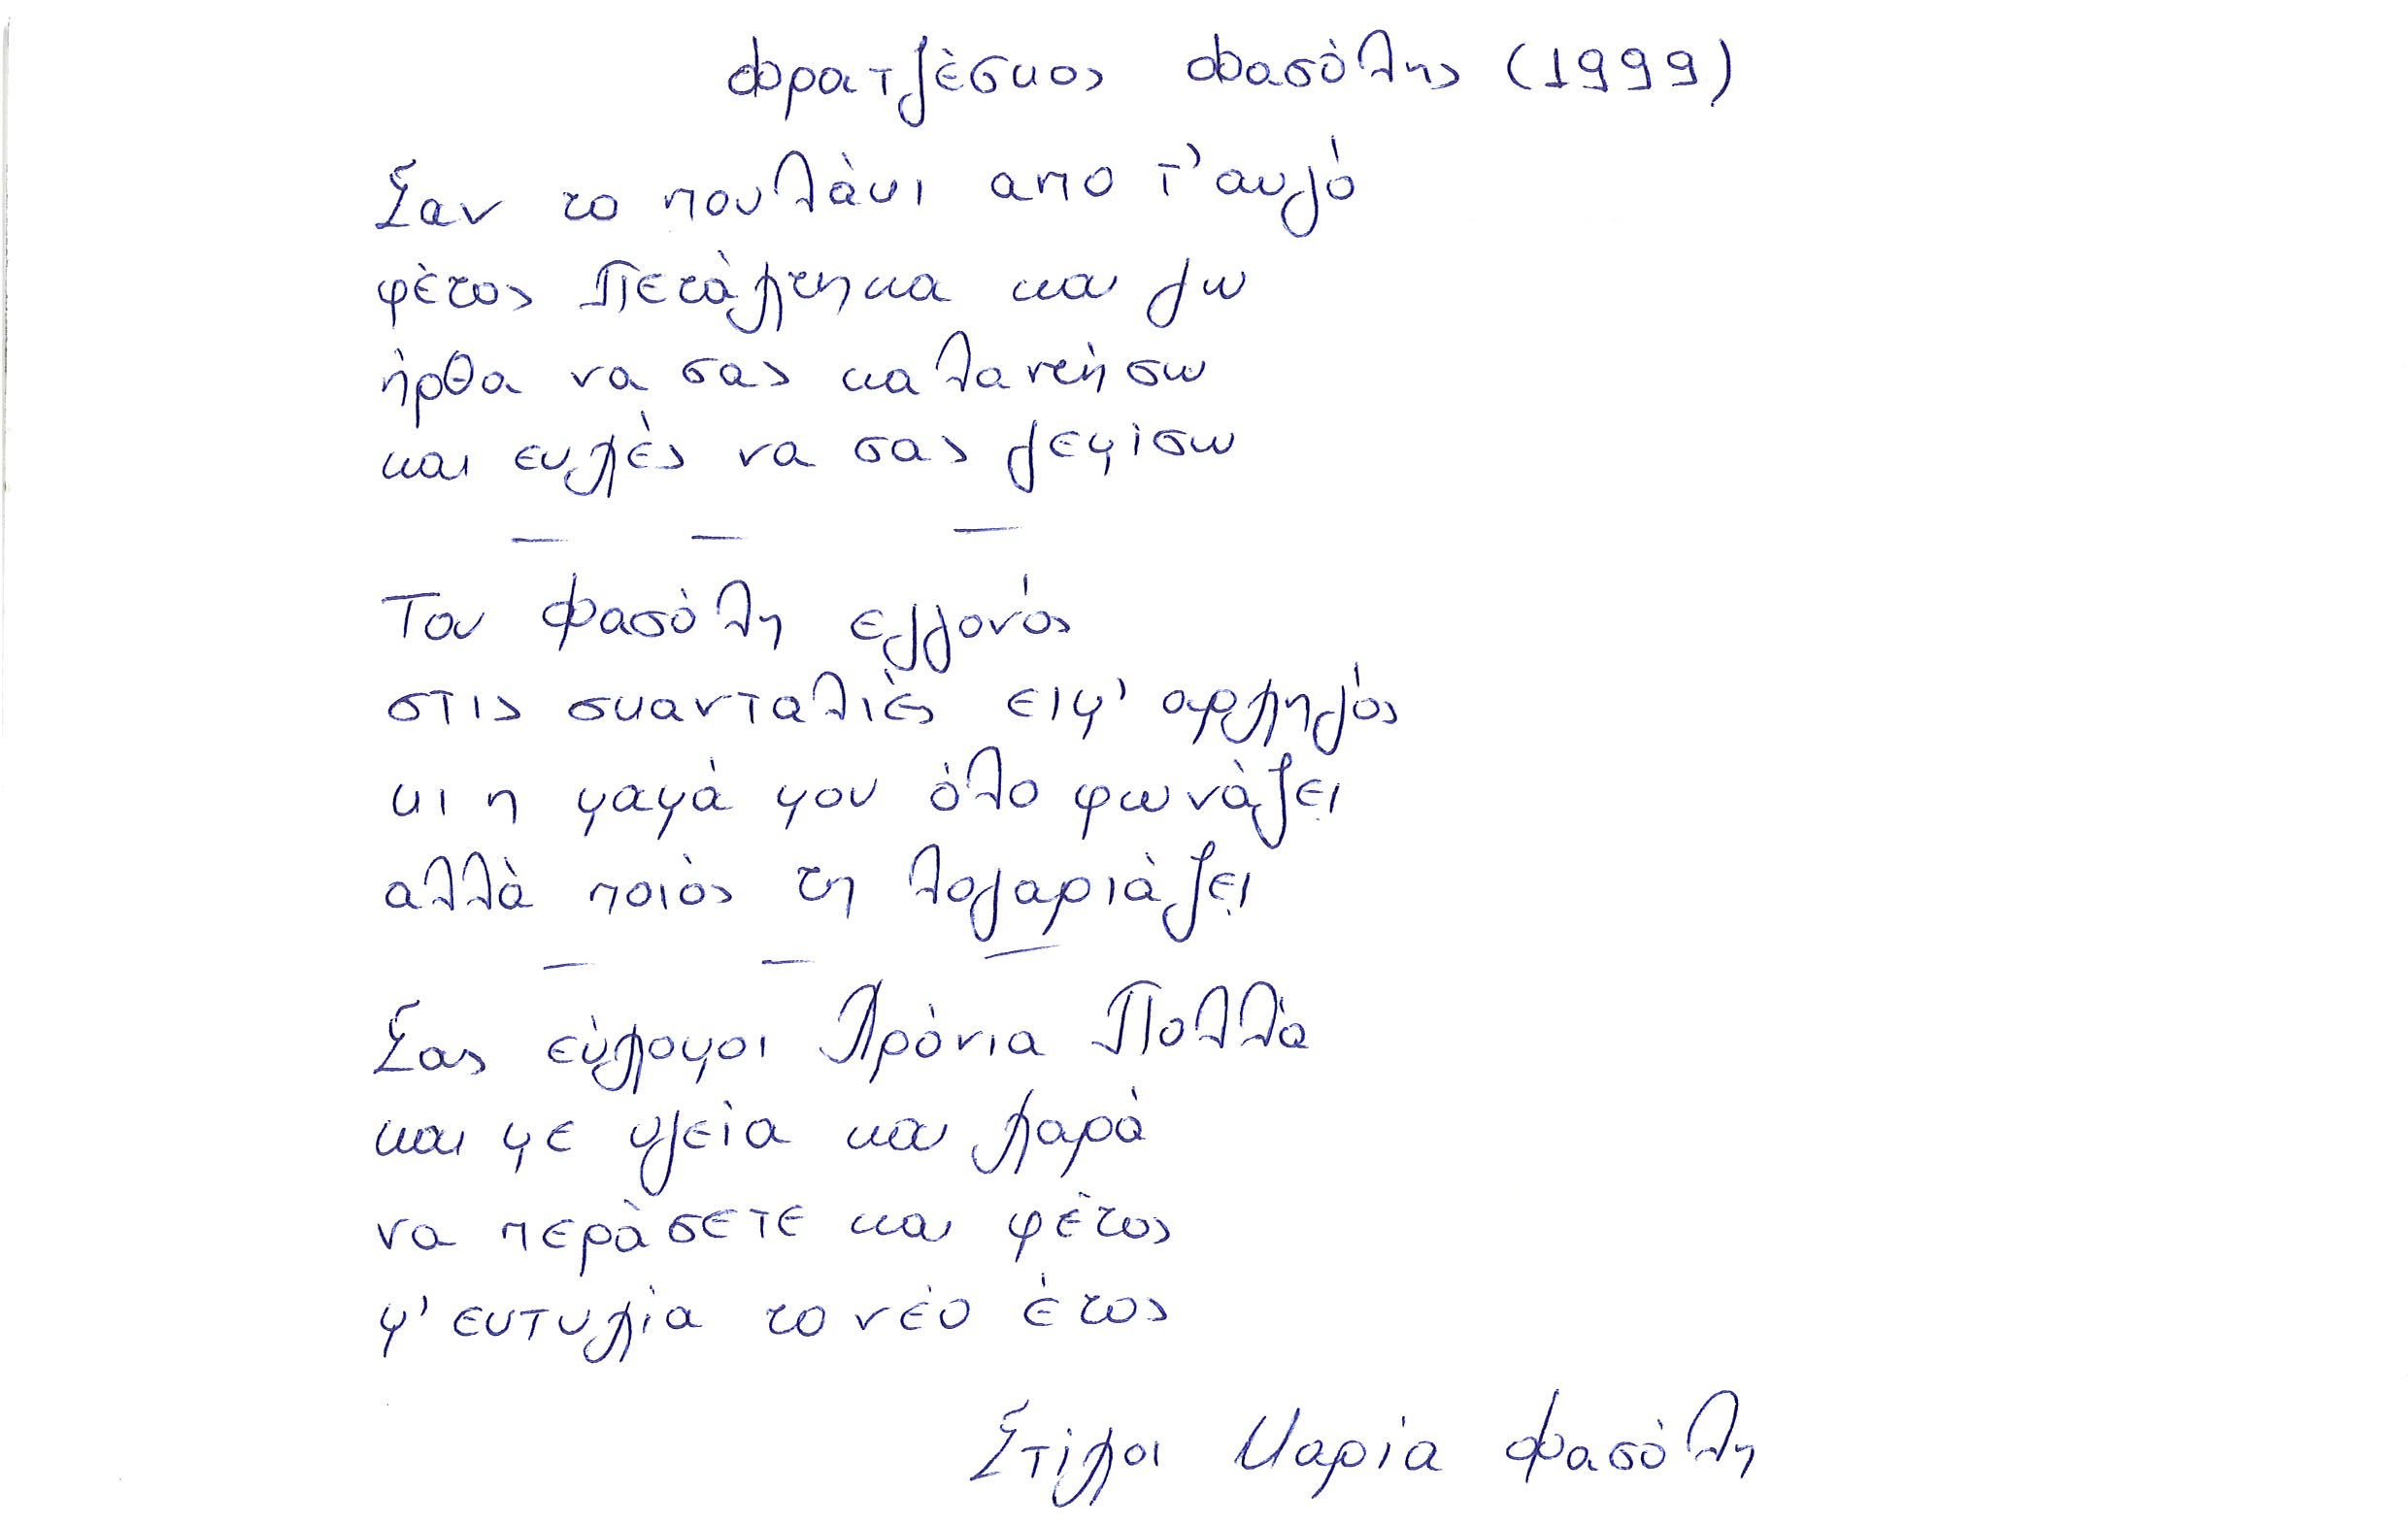 Φρατζέσκος Φασόλης (1999)
Σαν το πουλάκι απο τ' αυγό
φέτος Πετάχτηκα και γω
ήρθα να σας καλαντήσω
και ευχές να σας γεμίσω
— — —
Του Φασόλη εγγονός
στις σκανταλιές ειμ' αρχηγός
κι η μαμά μου όλο φωνάζει
αλλά ποιός τη λογαριάζει
— — —
Σας εύχομαι Χρόνια Πολλά
και με υγεία και χαρά
να περάσετε και φέτος
μ' ευτυχία το νέο έτος
Στίχοι Μαρία Φασόλη